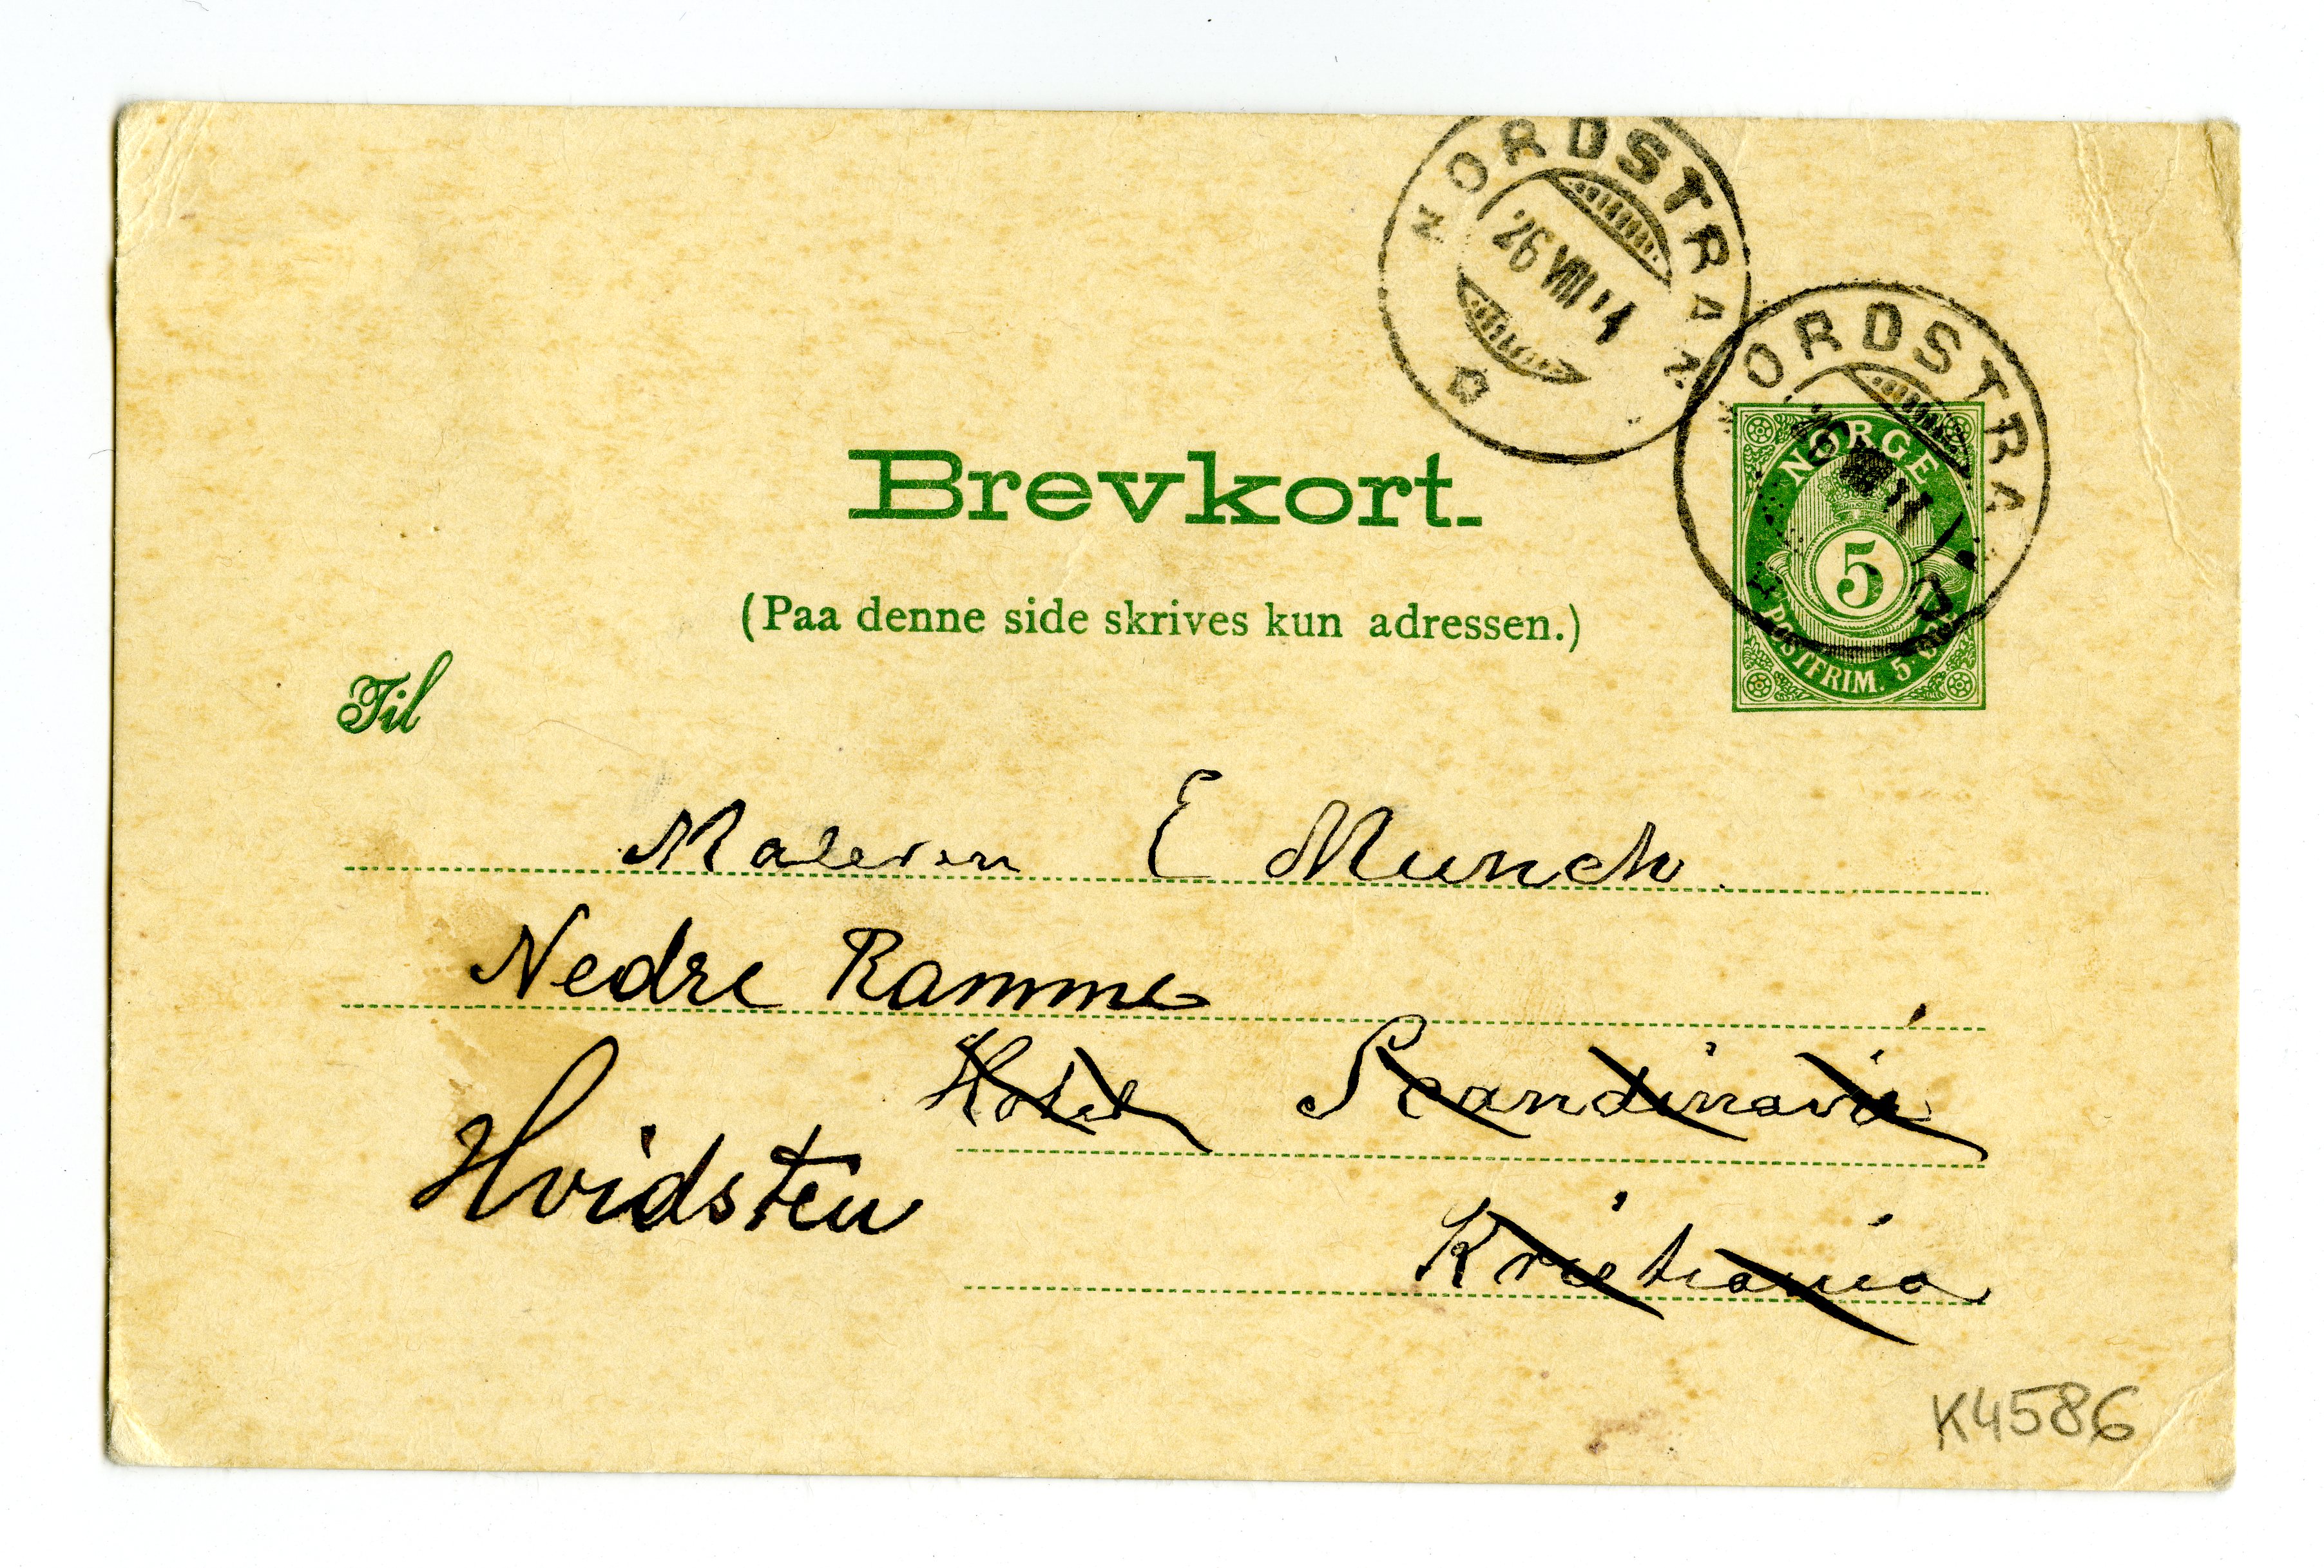 NORDSTRAN
26 VIII 14
NORDSTRA
NORGE
5
POSTFRIM. 5
Brevkort.
(Paa denne side skrives kun adressen.)
Til
Maleren E Munch
Nedre Ramme
Hotel Scandinavie
Hvidsten
Kristiania
K4586